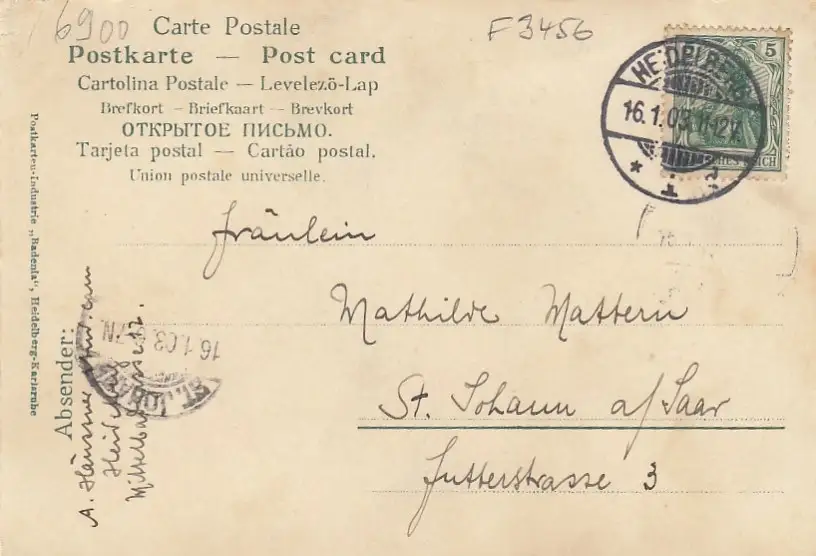 6900
F 3456
Carte Postale
Postkarte — Post card
Cartolina Postale — Levelezö-Lap
Brefkort — Briefkaart — Brevkort
ОТКРЫТОЕ ПИСЬМО.
Tarjeta postal — Cartão postal.
Union postale universelle.
5
HEIDELBERG
16.1.03. 11-12V.
* 1
REICH
Fräulein
Mathilde Mattern
St. Johann a/Saar
Futterstrasse 3
Postkarten-Industrie „Badenia", Heidelberg-Karlsruhe
Absender:
A. Häussner
Heidelberg
ST. JOHANN
16.1.03. 6-7N.